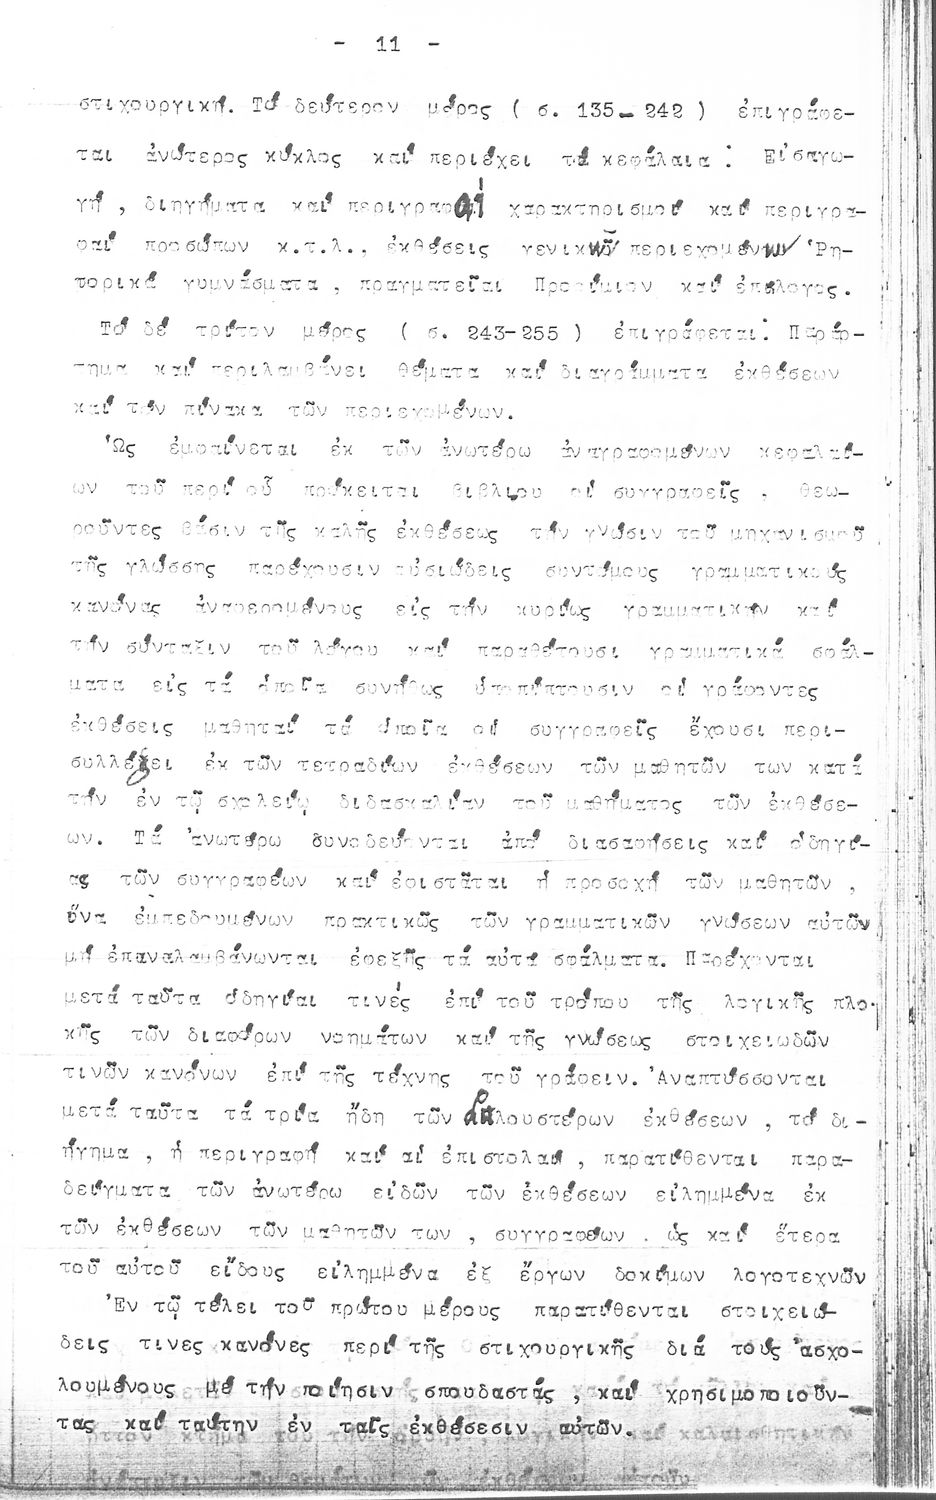 - 11 -
στιχουργική. Τό δεύτερον μέρος ( σ. 135-242 ) ἐπιγράφε-
ται ἀνώτερος κύκλος καί περιέχει τά κεφάλαια : Εἰσαγω-
γή , διηγήματα καί περιγραφαί χαρακτηρισμοί καί περιγρα-
φαί προσώπων κ.τ.λ., ἐκθέσεις γενικοῦ περιεχομένου Ῥη-
τορικά γυμνάσματα , πραγματεῖαι Προοίμιον καί ἐπίλογος.
Τό δέ τρίτον μέρος ( σ. 243-255 ) ἐπιγράφεται: Παράρ-
τημα καί περιλαμβάνει θέματα καί διαγράμματα ἐκθέσεων
καί τόν πίνακα τῶν περιεχομένων.
Ὡς ἐμφαίνεται ἐκ τῶν ἀνωτέρω ἀναγραφομένων κεφαλαί-
ων τοῦ περί οὗ πρόκειται βιβλίου οἱ συγγραφεῖς , θεω-
ροῦντες βάσιν τῆς καλῆς ἐκθέσεως τήν γνῶσιν τοῦ μηχανισμοῦ
τῆς γλώσσης παρέχουσιν οὐσιώδεις συντόμους γραμματικούς
κανόνας ἀναφερομένους εἰς τήν κυρίως γραμματικήν καί
τήν σύνταξιν τοῦ λόγου καί παραθέτουσι γραμματικά σφάλ-
ματα εἰς τά ὁποῖα συνήθως ὑποπίπτουσιν οἱ γράφοντες
ἐκθέσεις μαθηταί τά ὁποῖα οἱ συγγραφεῖς ἔχουσι περι-
συλλέξει ἐκ τῶν τετραδίων ἐκθέσεων τῶν μαθητῶν των κατά
τήν ἐν τῷ σχολείῳ διδασκαλίαν τοῦ μαθήματος τῶν ἐκθέσε-
ων. Τά ἀνωτέρω συνοδεύονται ἀπό διασαφήσεις καί ὁδηγί-
ας τῶν συγγραφέων καί ἐφιστᾶται ἡ προσοχή τῶν μαθητῶν ,
ἵνα ἐμπεδουμένων πρακτικῶς τῶν γραμματικῶν γνώσεων αὐτῶν
μή ἐπαναλαμβάνωνται ἐφεξῆς τά αὐτά σφάλματα. Παρέχονται
μετά ταῦτα ὁδηγίαι τινές ἐπί τοῦ τρόπου τῆς λογικῆς πλο-
κῆς τῶν διαφόρων νοημάτων καί τῆς γνώσεως στοιχειωδῶν
τινῶν κανόνων ἐπί τῆς τέχνης τοῦ γράφειν. Ἀναπτύσσονται
μετά ταῦτα τά τρία ἤδη τῶν ἁπλουστέρων ἐκθέσεων , τό δι-
ήγημα , ἡ περιγραφή καί αἱ ἐπιστολαί , παρατίθενται παρα-
δείγματα τῶν ἀνωτέρω εἰδῶν τῶν ἐκθέσεων εἰλημμένα ἐκ
τῶν ἐκθέσεων τῶν μαθητῶν των , συγγραφέων . ὡς καί ἕτερα
τοῦ αὐτοῦ εἴδους εἰλημμένα ἐξ ἔργων δοκίμων λογοτεχνῶν
Ἐν τῷ τέλει τοῦ πρώτου μέρους παρατίθενται στοιχειώ-
δεις τινες κανόνες περί τῆς στιχουργικῆς διά τούς ἀσχο-
λουμένους μέ τήν ποίησιν σπουδαστάς , καί χρησιμοποιοῦν-
τας καί ταύτην ἐν ταῖς ἐκθέσεσιν αὐτῶν.